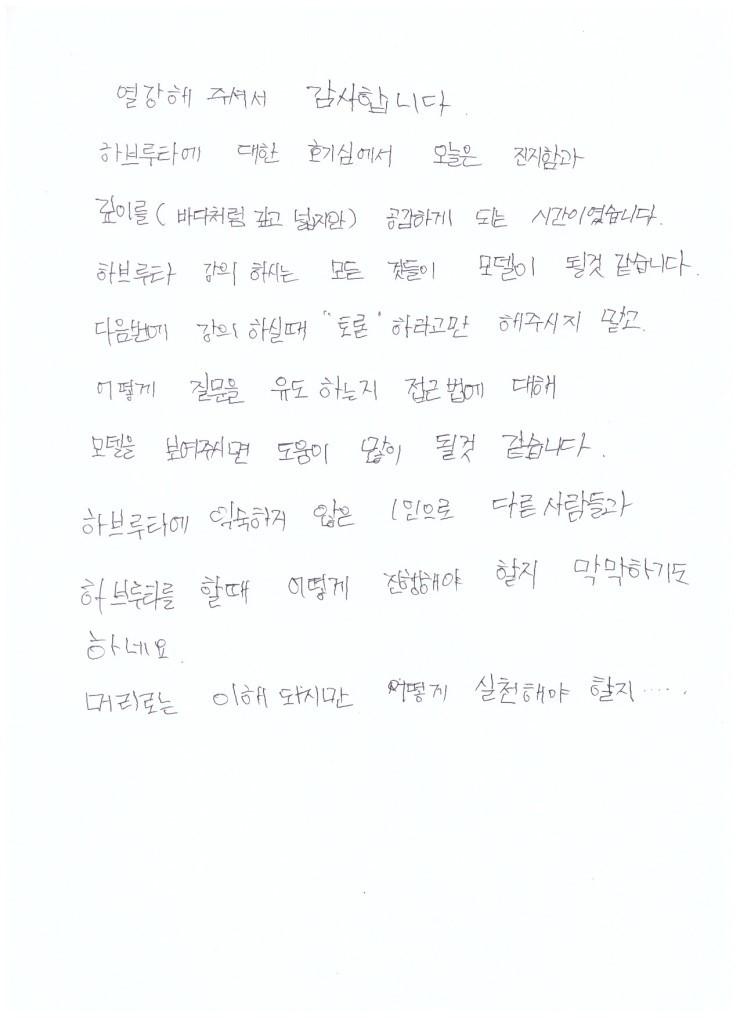 열강해 주셔서 감사합니다.
하브루타에 대한 호기심에서 오늘은 진지함과
깊이를 (바다처럼 깊고 넓지만) 공감하게 되는 시간이였습니다.
하브루타 강의 하시는 모든 것들이 모델이 될것 같습니다.
다음번에 강의 하실때 "토론" 하라고만 해주시지 말고
어떻게 질문을 유도 하는지 접근법에 대해
모델을 보여주시면 도움이 많이 될것 같습니다.
하브루타에 익숙하지 않은 1인으로 다른 사람들과
하브루타를 할때 어떻게 진행해야 할지 막막하기도
하네요.
머리로는 이해 돼지만 어떻게 실천해야 할지.....